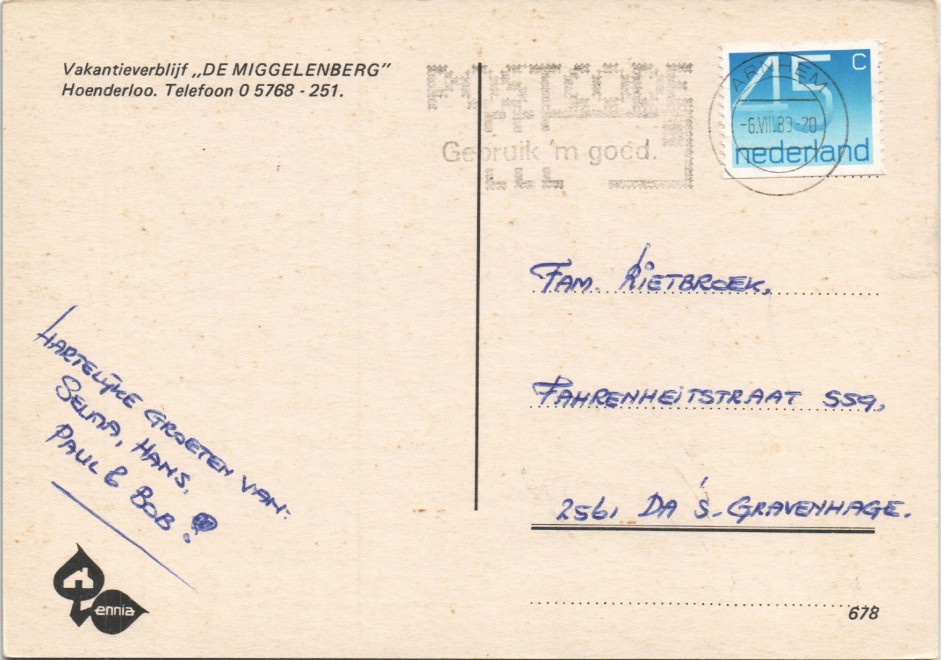 Vakantieverblijf „DE MIGGELENBERG”
Hoenderloo. Telefoon 0 5768 - 251.
POSTCODE
Gebruik 'm goed.
ARNHEM
-6.VIII.8
-20
45 C
nederland
FAM. RIETBROEK,
FAHRENHEITSTRAAT 559,
2561 DA 's-GRAVENHAGE.
HARTELIJKE GROETEN VAN:
SELMA, HANS,
PAUL & BOB !
ennia
678